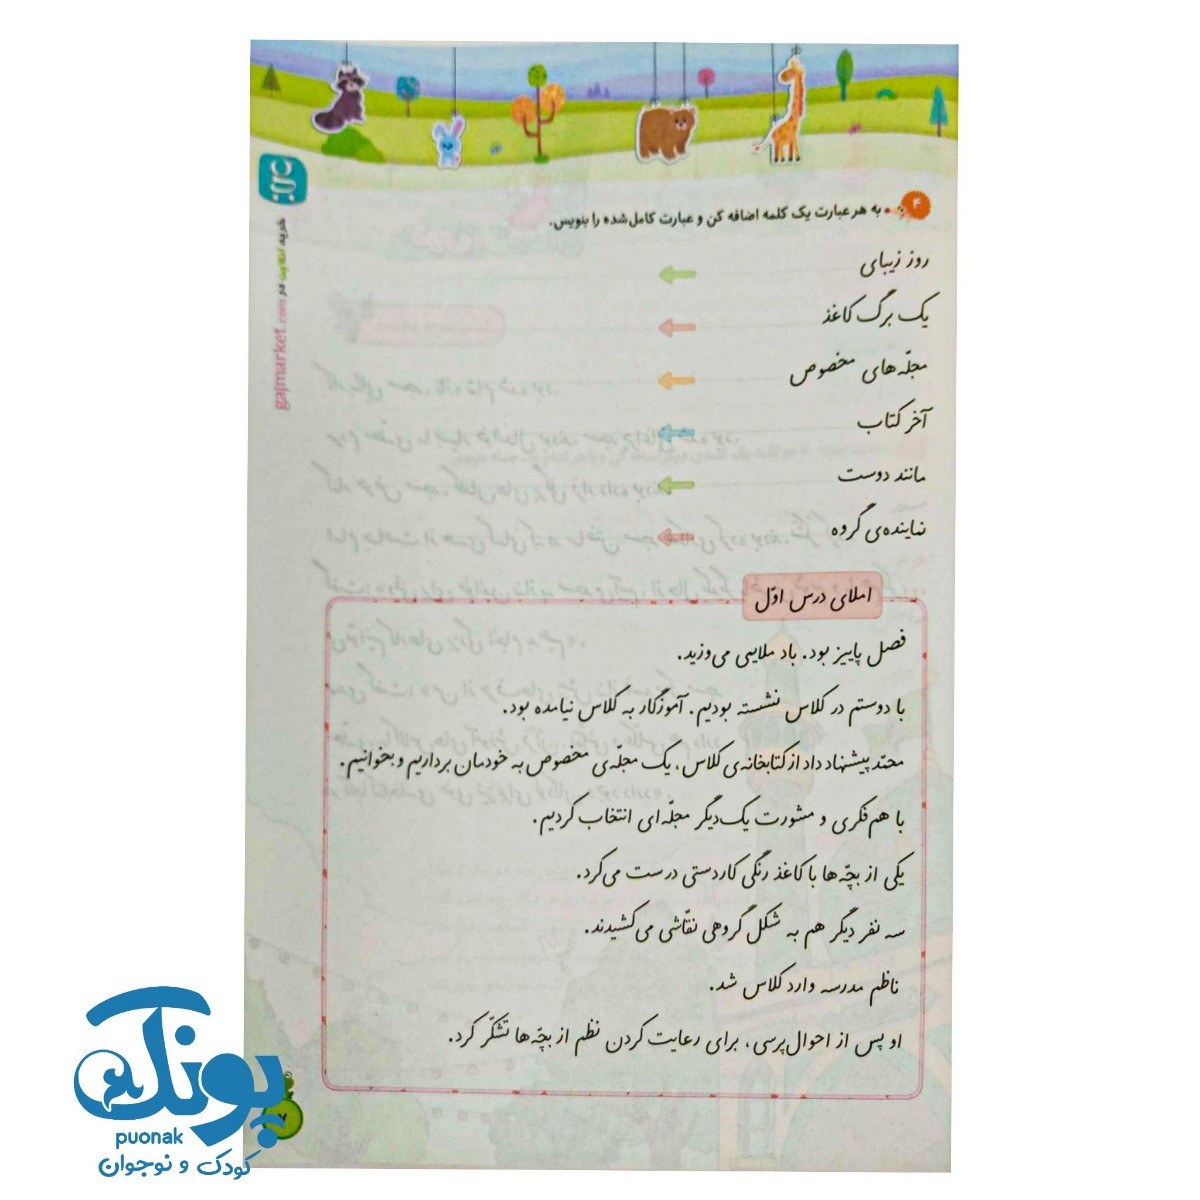 ۴
به هر عبارت یک کلمه اضافه کن و عبارت کامل‌شده را بنویس.
روز زیبای
یک برگ کاغذ
مجلّه‌های مخصوص
آخر کتاب
مانند دوست
نماینده‌ی گروه
املای درس اوّل
فصل پاییز بود. باد ملایمی می‌وزید.
با دوستم در کلاس نشسته بودیم. آموزگار به کلاس نیامده بود.
محمّد پیشنهاد داد از کتابخانه‌ی کلاس، یک مجلّه‌ی مخصوص به خودمان برداریم و بخوانیم.
با هم‌فکری و مشورت یک‌دیگر مجلّه‌ای انتخاب کردیم.
یکی از بچّه‌ها با کاغذ رنگی کاردستی درست می‌کرد.
سه نفر دیگر هم به شکل گروهی نقّاشی می‌کشیدند.
ناظم مدرسه وارد کلاس شد.
او پس از احوال‌پرسی، برای رعایت کردن نظم از بچّه‌ها تشکّر کرد.
خرید آنلاین در gajmarket.com
۷
پونک
puonak
کودک و نوجوان